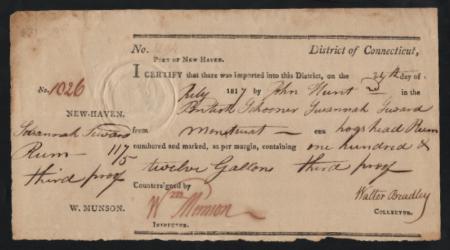 No. District of Connecticut,
Port of New Haven.
No. 1026
I CERTIFY that there was imported into this District, on the 24th day of
July 1817 by John Hunt
NEW-HAVEN. British Schooner Savannah Seward
Savannah Seward from Montserrat — one hogshead Rum
Rum — 115 numbered and marked, as per margin, containing one hundred &
third proof twelve Gallons third proof
Countersigned by
W. MUNSON. Wm Munson Walter Bradley
Inspector. Collector.